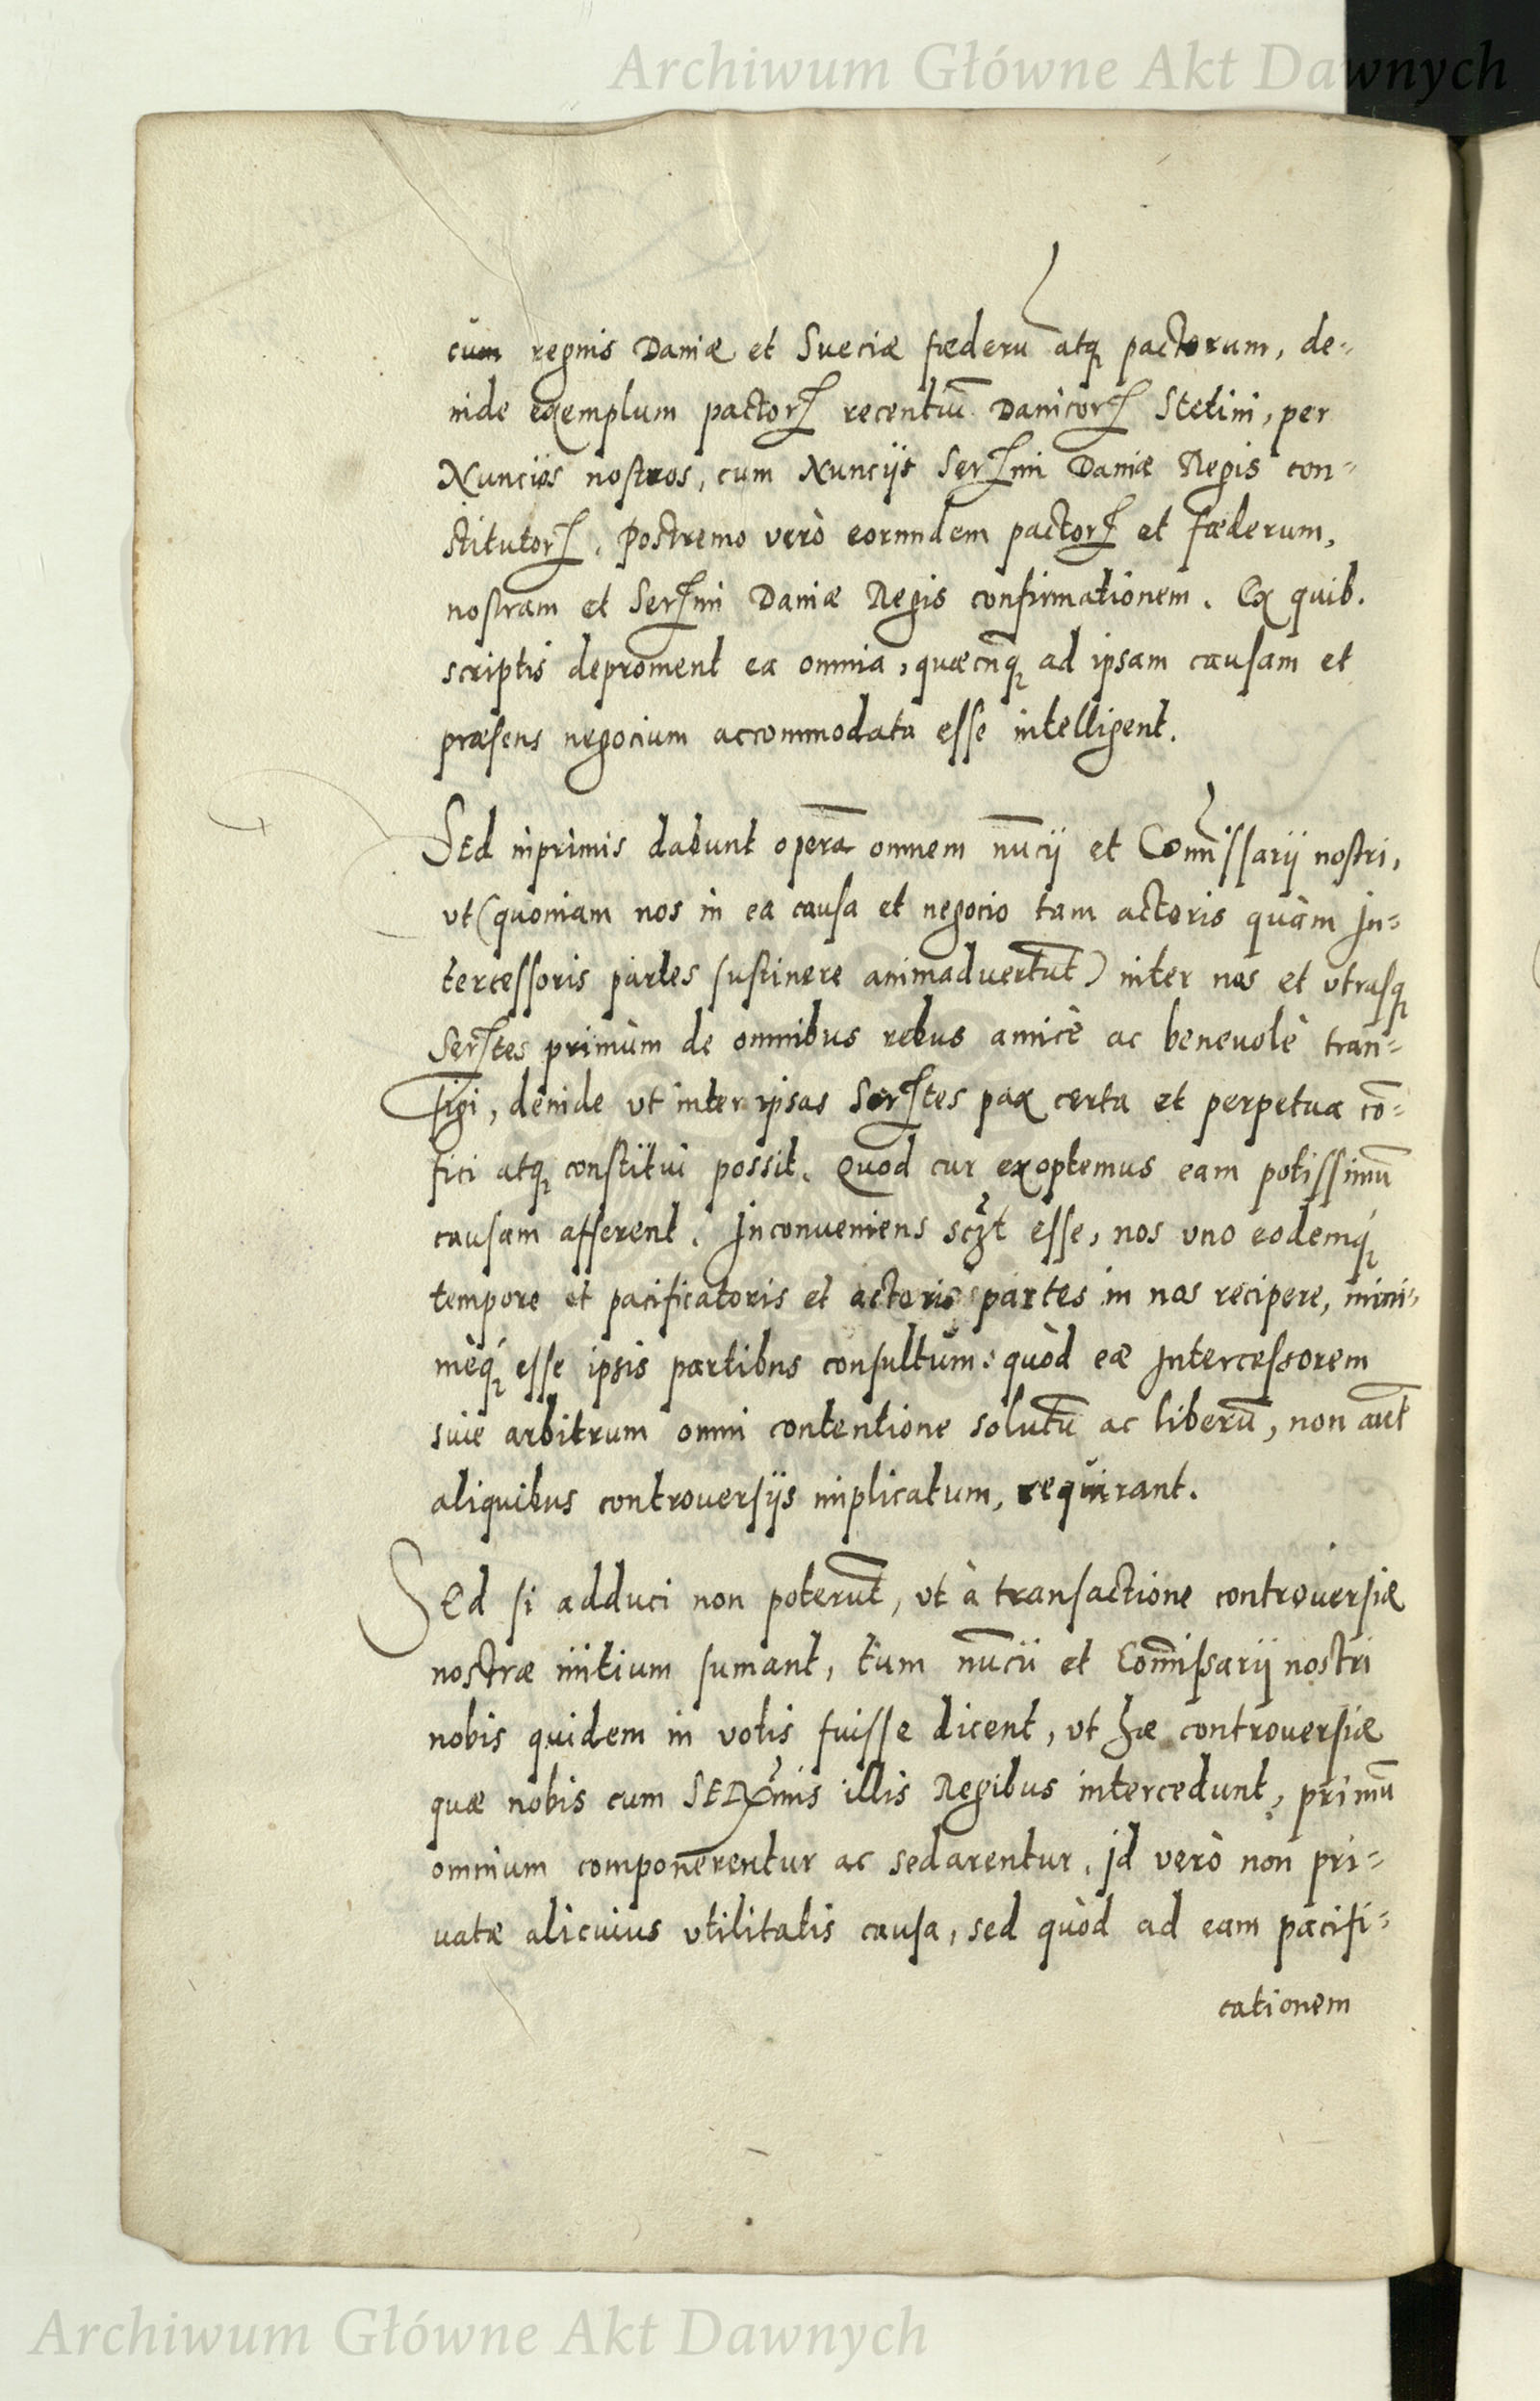 Archiwum Główne Akt Dawnych
cum regnis Daniæ et Sueciæ fœderū atq́ pactorum, de=
inde exemplum pactorꝝ recentiū Danicorꝝ Stetini, per
Nuncios nostros, cum Nuncijs Serꝝmi Daniæ Regis con=
stitutorꝝ. Postremo verò eorundem pactorꝝ et fœderum,
nostram et Serꝝmi Daniæ Regis confirmationem. Ex quib.
scriptis depromènt ea omnia, quæcunq̃ ad ipsam causam et
præsens negocium accommodata esse intelligent.
SEd inprimis dabunt operā omnem nūcij et Com̄issarij nostri,
vt (quoniam nos in ea causa et negocio tam actoris quàm In=
tercessoris partes sustinere animadvertūt) inter nos et vtrasq
Serꝝtes primùm de omnibus rebus amicè ac beneuolè tran=
sigi, deinde vt inter ipsas Serꝝtes pax certa et perpetua cō=
fici atq constitui possit. Quod cur exoptemus eam potissimū
causam afferent. Inconueniens sczt esse, nos vno eodemq́
tempore et pacificatoris et actoris partes in nos recipere, mini=
mèq́ esse ipsis partibus consultum: quòd eæ Intercessorem
siue arbitrum omni contentione solutū ac liberū, non aūt
aliquibus controuersijs implicatum, requirant.
SEd si adduci non poterūt, vt à transactione controuersiæ
nostræ initium sumant, tum nūcii et Com̄issarij nostri
nobis quidem in votis fuisse dicent, vt hæ controuersiæ
quæ nobis cum SERꝝmis illis Regibus intercedunt, primū
omnium componerentur ac sedarentur. Id verò non pri=
uatæ alicuius vtilitatis causa, sed quòd ad eam pacifi=
cationem
Archiwum Główne Akt Dawnych